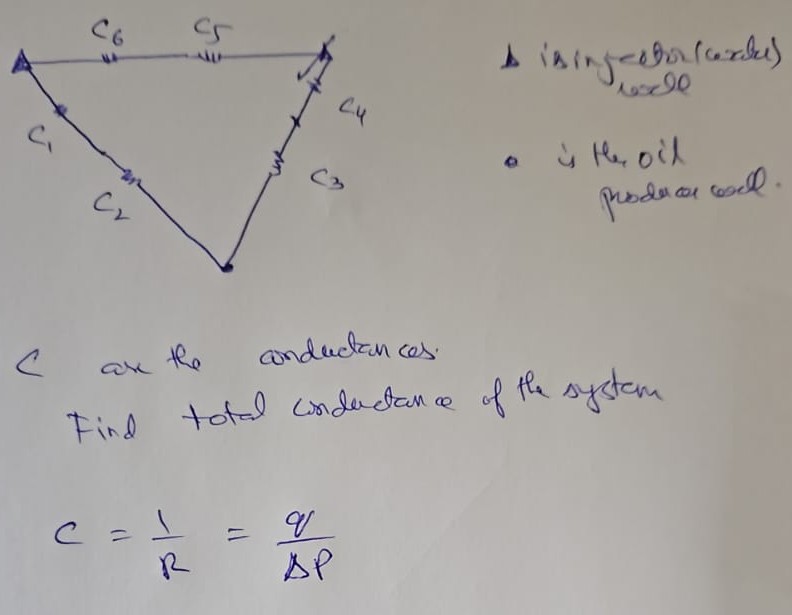 C6 C5
C4
C1
C3
C2
▲ is injector (water) well
• is the oil
producer well.
C are the conductances.
Find total conductance of the system
C = 1/R = q/ΔP